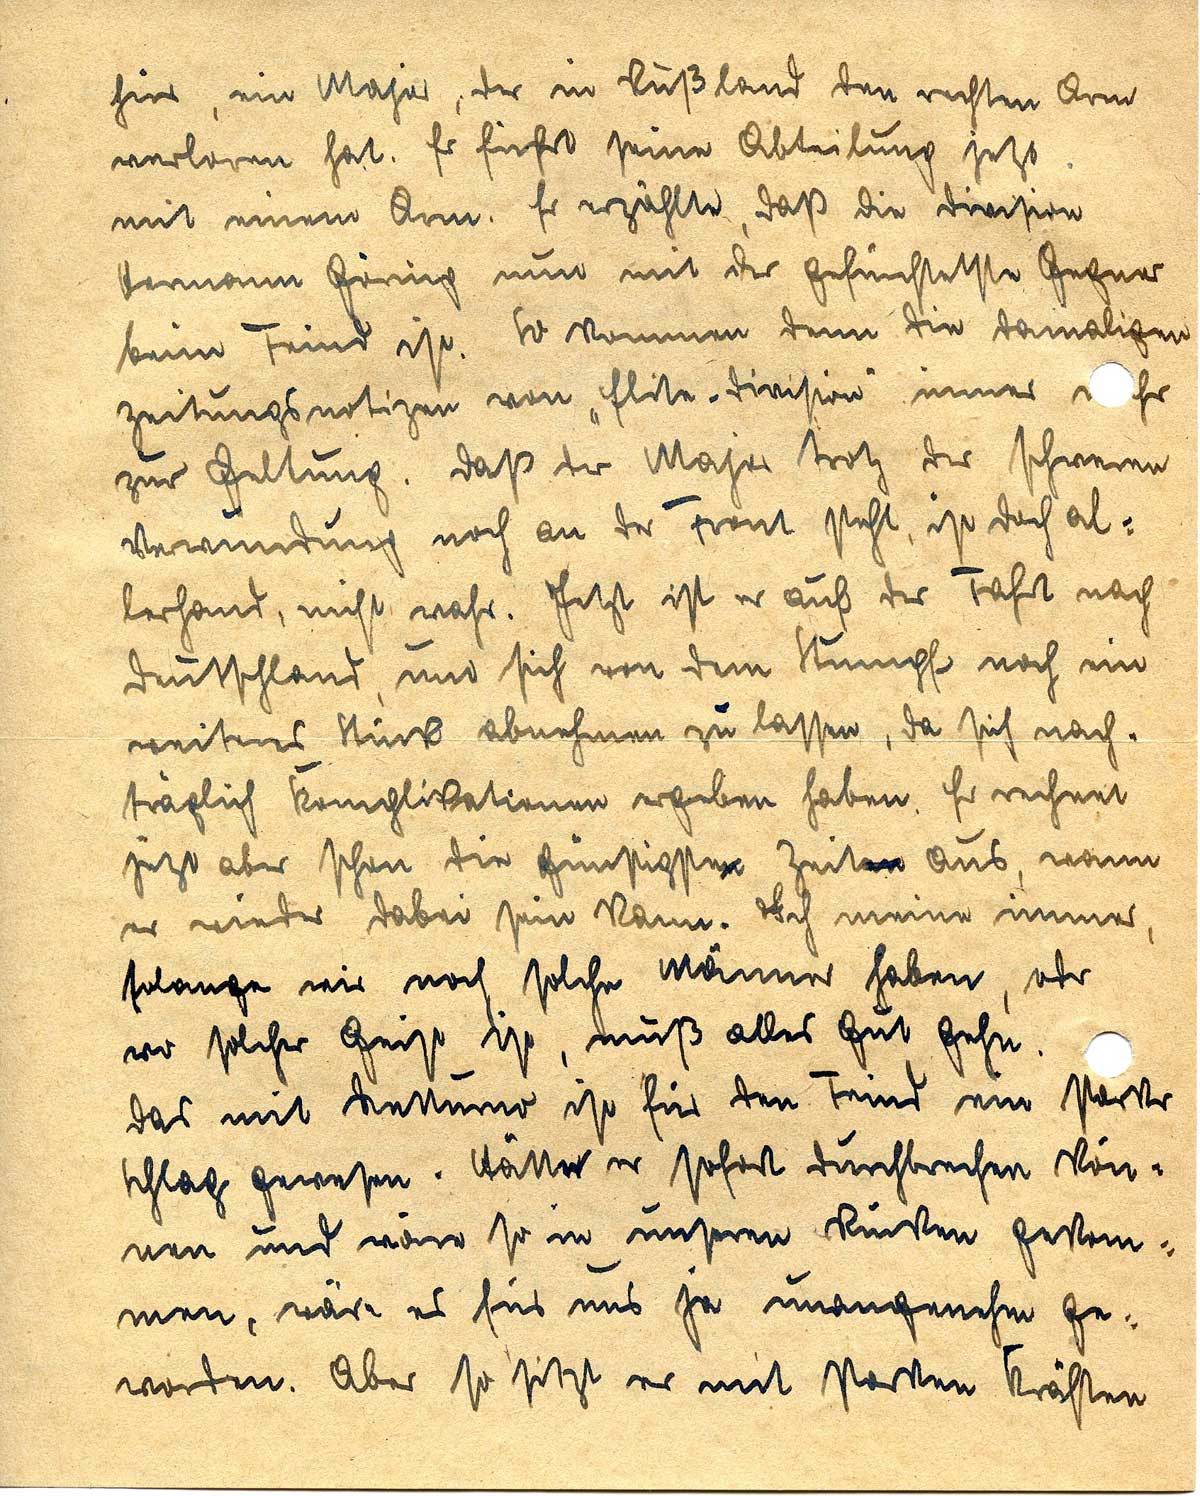 hier, ein Major, der in Rußland den rechten Arm
verloren hat. Er führt seine Abteilung jetzt
mit einem Arm. Er erzählte, daß die Division
Hermann Göring nun mit der gefürchtetste Gegner
beim Feind ist. So kommen denn die damaligen
Zeitungsnotizen von „Elite-Division" immer mehr
zur Geltung. Daß der Major trotz der schweren
Verwundung noch an der Front steht, ist doch al=
lerhand, nicht wahr. Jetzt ist er auf der Fahrt nach
Deutschland, um sich von dem Stumpf noch ein
weiteres Stück abnehmen zu lassen, da sich nach-
träglich Komplikationen ergeben haben. Er rechnet
jetzt aber schon die günstigsten Zeiten aus, wann
er wieder dabei sein kann. Ich meine immer,
solange wir noch solche Männer haben, oder
wo solcher Geist ist, muß alles gut gehn.
Das mit Nettuno ist für den Feind ein starker
Schlag gewesen. Hätte er sofort durchbrechen kön=
nen und wäre so in unseren Rücken gekom=
men, wäre es für uns ja unangenehm ge=
worden. Aber so sitzt er mit starken Kräften